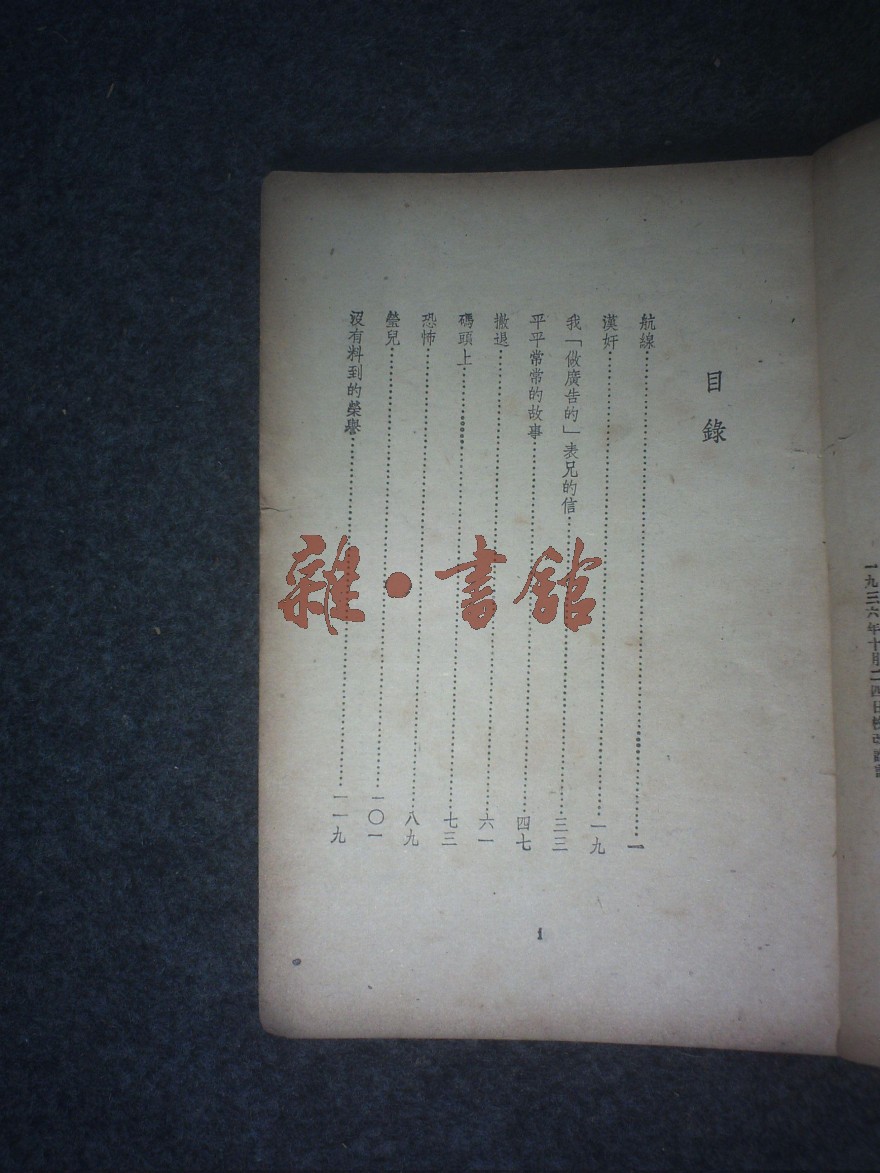 一九三六年十月二四日
目錄
航線 一
漢奸 一九
我「做廣告的」表兄的信 三三
平平常常的故事 四七
撤退 六一
碼頭上 七三
恐怖 八九
瑩兒 一〇一
沒有料到的榮譽 一一九
1
雜·書館